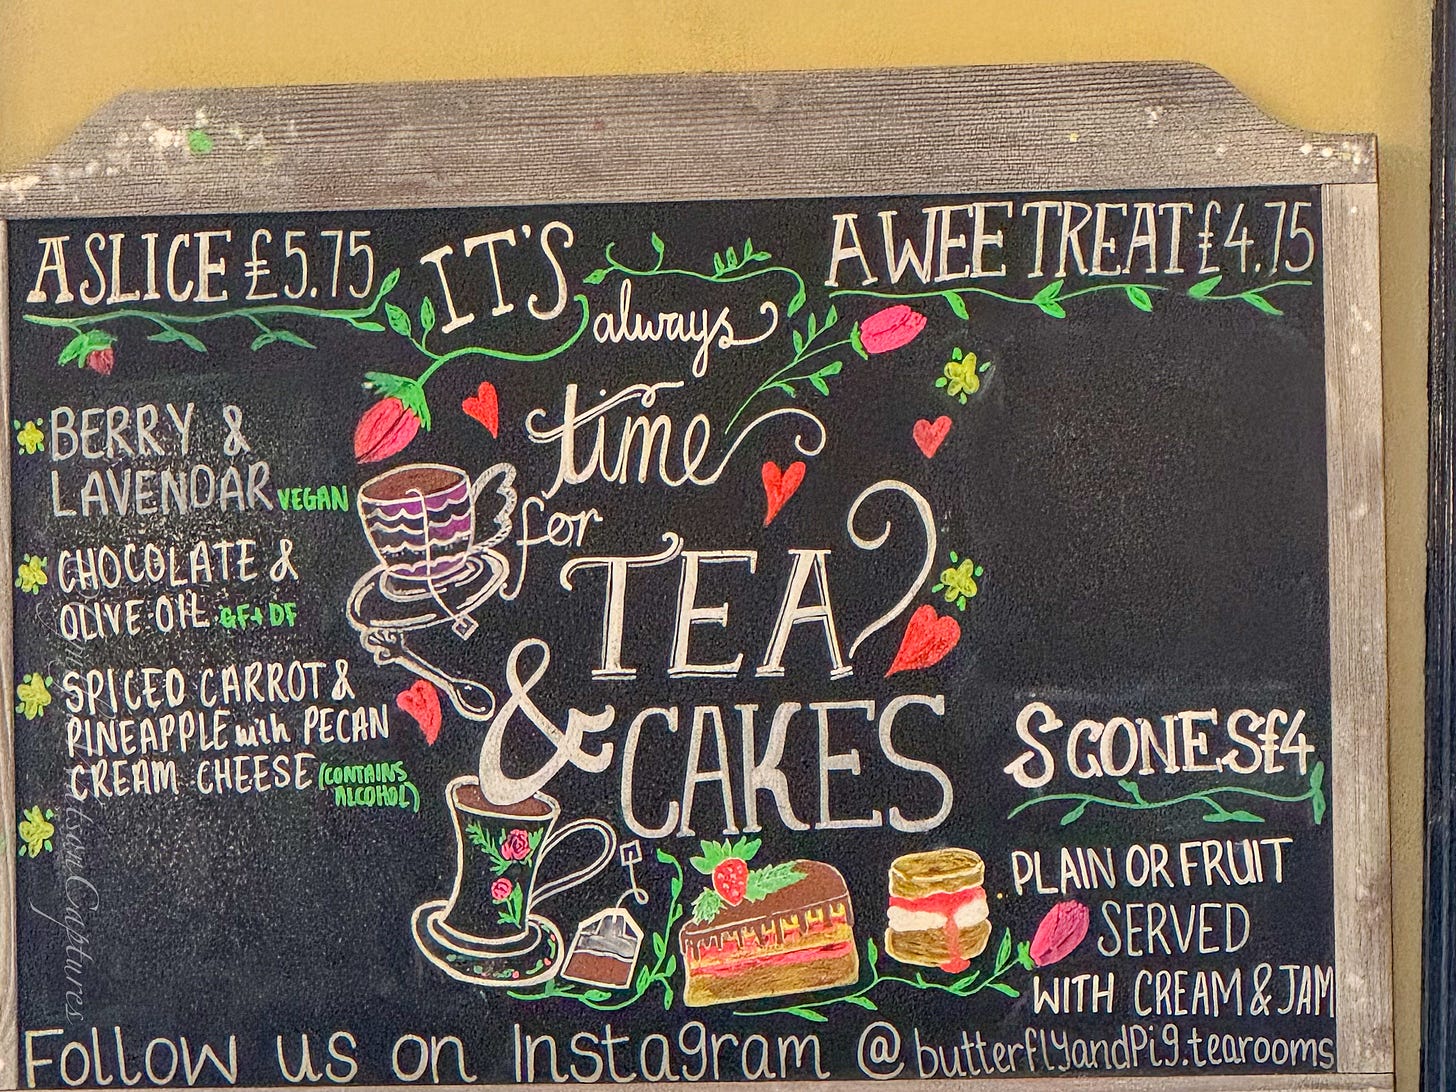 A SLICE £5.75
IT'S
always
time
for
TEA
& CAKES
A WEE TREAT £4.75
BERRY &
LAVENDAR VEGAN
CHOCOLATE &
OLIVE OIL GF+DF
SPICED CARROT &
PINEAPPLE with PECAN
CREAM CHEESE (CONTAINS
ALCOHOL)
SCONES £4
PLAIN OR FRUIT
SERVED
WITH CREAM & JAM
Follow us on Instagram @butterflyandPig.tearooms
Captures